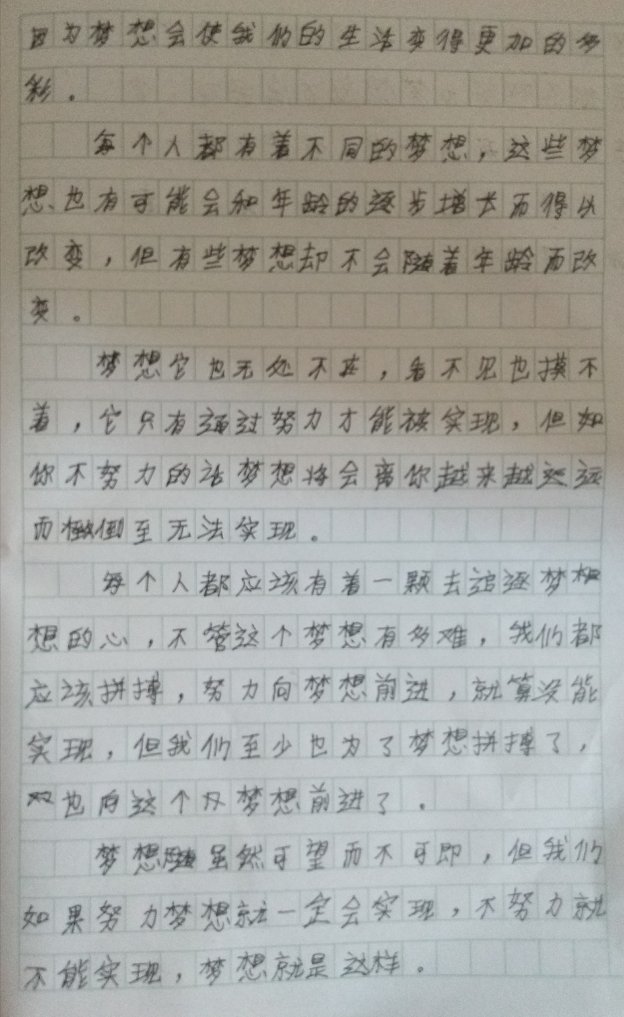 因为梦想会使我们的生活变得更加的多
彩。
每个人都有着不同的梦想，这些梦
想也有可能会和年龄的逐步增长而得以
改变，但有些梦想却不会随着年龄而改
变。
梦想它也无处不在，看不见也摸不
着，它只有通过努力才能被实现，但如
你不努力的话梦想将会离你越来越远
而倒至无法实现。
每个人都应该有着一颗去追逐梦
想的心，不管这个梦想有多难，我们都
应该拼搏，努力向梦想前进，就算没能
实现，但我们至少也为了梦想拼搏了，
也向这个梦想前进了。
梦想虽然可望而不可即，但我们
如果努力梦想就一定会实现，不努力就
不能实现，梦想就是这样。